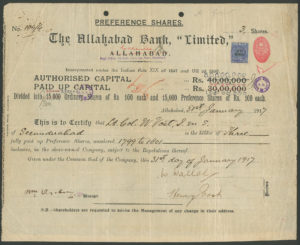 PREFERENCE SHARES.
No. 3 Shares.
The Allahabad Bank, "Limited,"
ALLAHABAD.
Incorporated under the Indian Acts XIX of 1857 and
AUTHORISED CAPITAL Rs. 40,00,000
PAID UP CAPITAL Rs. 30,00,000
Divided into 15,000 Ordinary Shares of Rs 100 each and 15,000 Preference Shares of Rs. 100 each.
Allahabad, 31st January 1917
This is to Certify that Lt. Col. W. Vost, I. M. S.
of Secunderabad is the holder of Three
fully paid up Preference Shares, numbered 1799 to 1801
inclusive, in the above-named Company, subject to the Regulations thereof.
Given under the Common Seal of the Company, this 31st day of January 1917.
N.B.—Shareholders are requested to advise the Management of any change in their address.